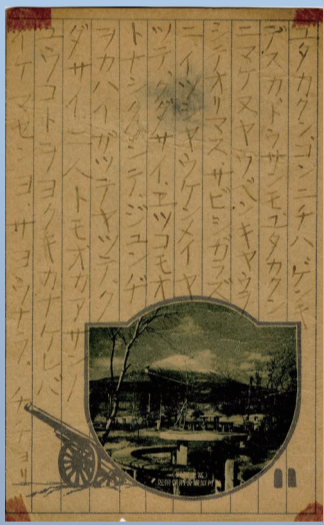 ユタカクン、コンニチハ、ゲンキ
デスカ、ドウサンモユタカクン
ニマケヌヤウベンキヤウヲ
シテオリマス サビシガラズ
ニイツシヤウケンメイヤ
ツテクダサイ、エツコモオ
トナシクシテ、ジユンヂ
ヲカハイガツテヤツテク
ダサイ、ニ人トモオカアサン
イウコトヲヨクキカナケレバ
イケマセンヨ、サヨウナラ、チチヨリ